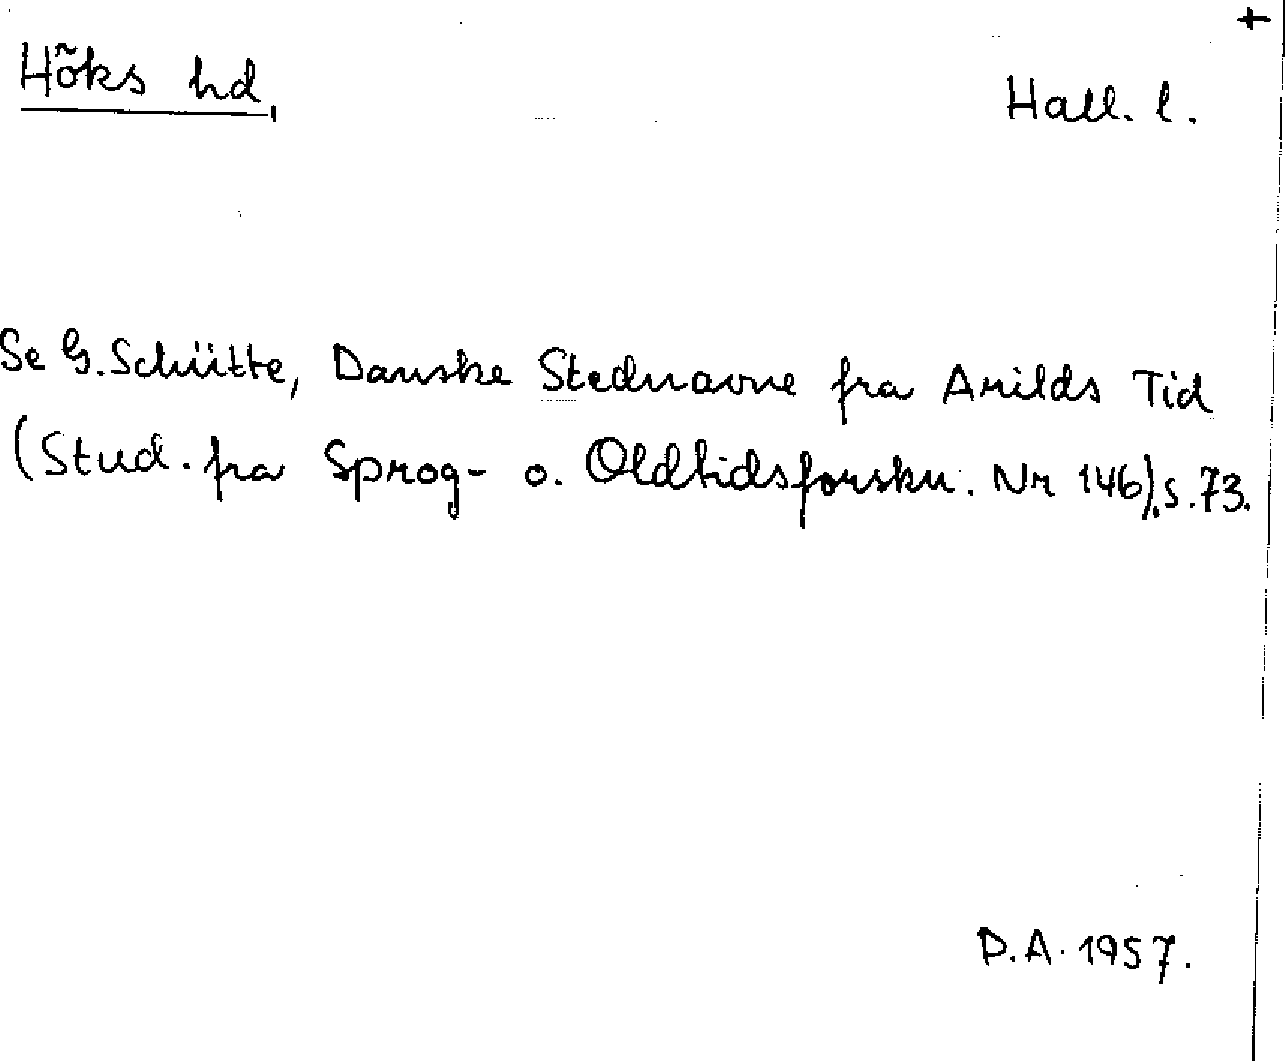 +
Höks hd,
Hall. l.
Se G. Schütte, Danske Stednavne fra Arilds Tid
(Stud. fra Sprog- o. Oldtidsforskn. Nr 146), s. 73.
D.A. 1957.